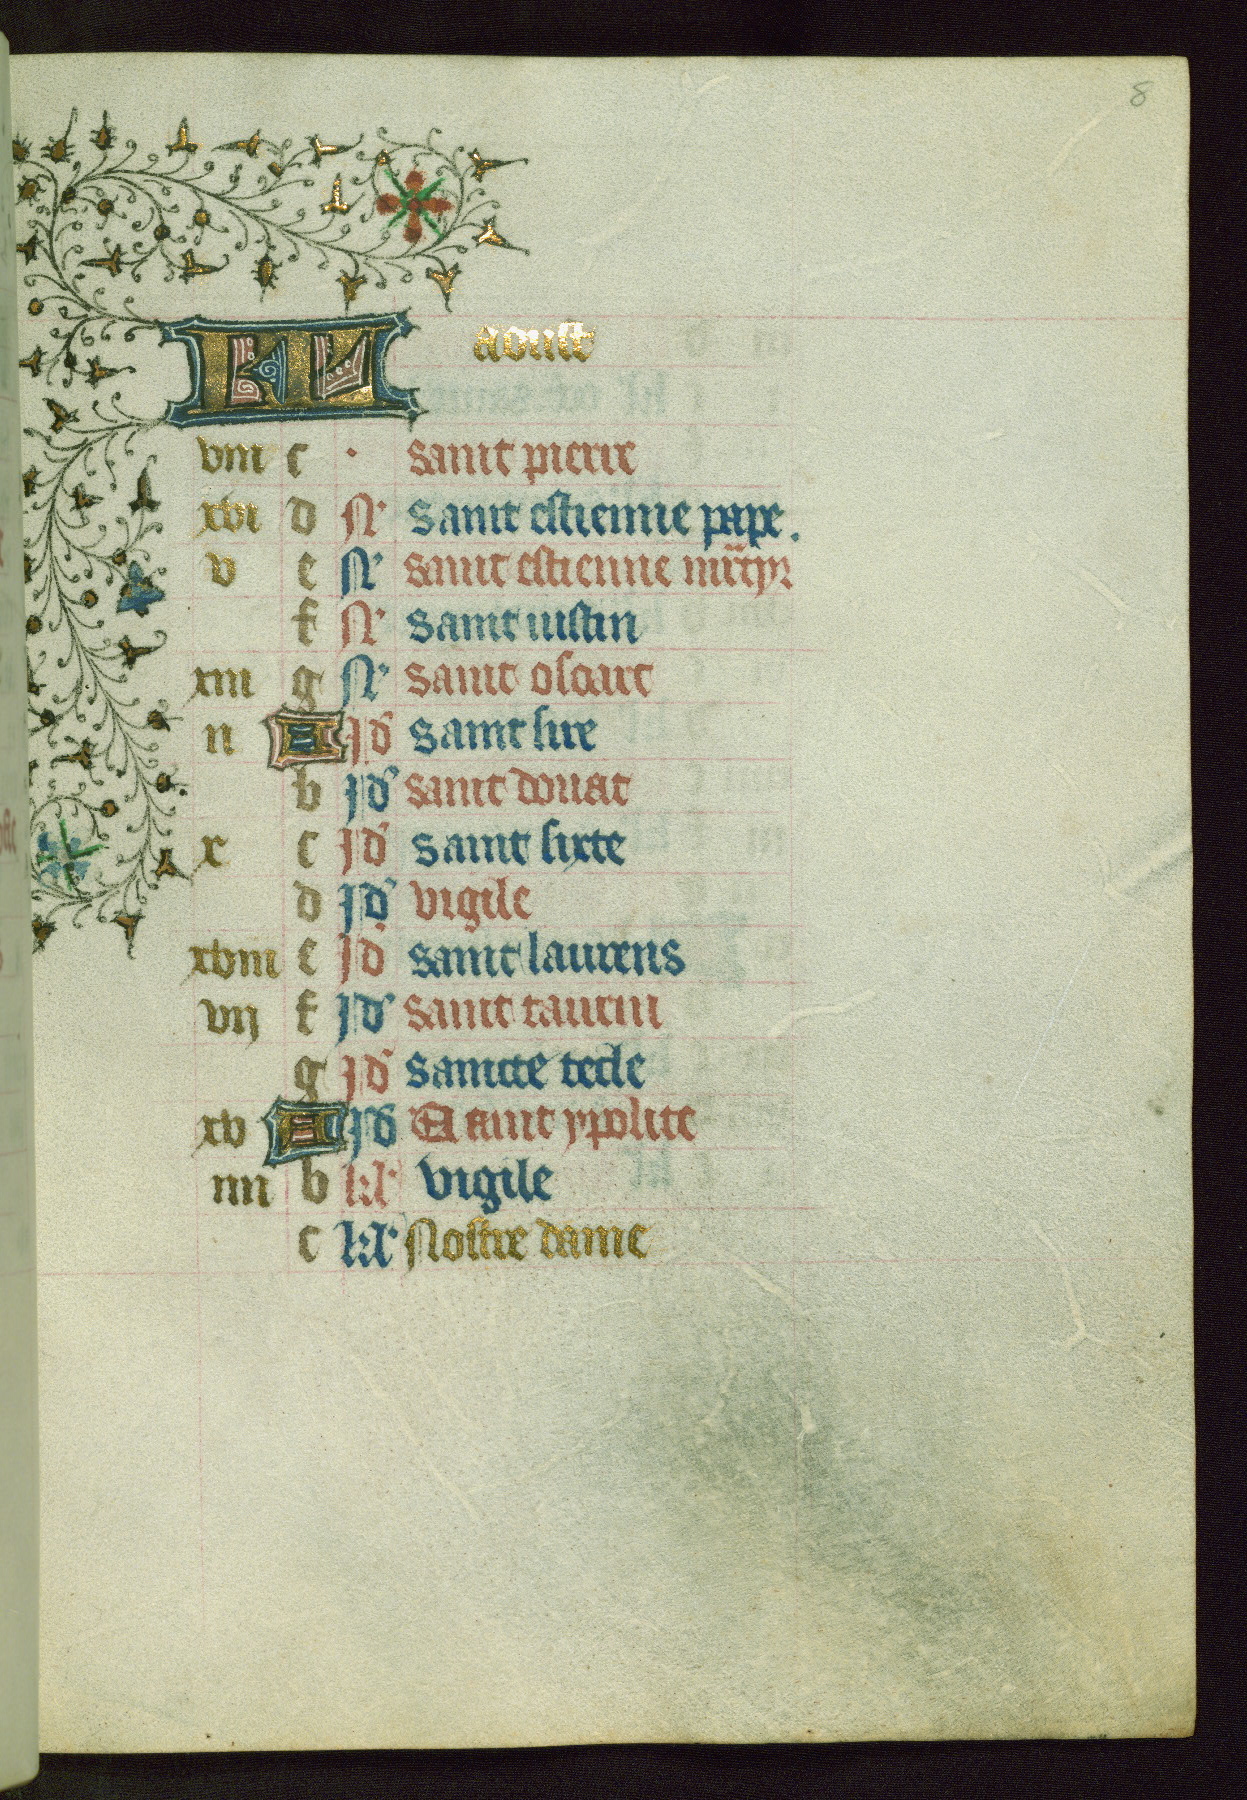 8
KL aoust
viii c · saint pierre
xvi d N' saint estienne pape.
v e N' saint estienne martyr
f N' saint iustin
xiii g N' saint oscart
ii A id' saint sire
b id' saint donat
x c id' saint sixte
d id' vigile
xviii e id' saint laurens
vij f id' saint taurin
g id' saincte tecle
xv A id' Saint ypolite
iiii b kl' vigile
c kl' Nostre dame